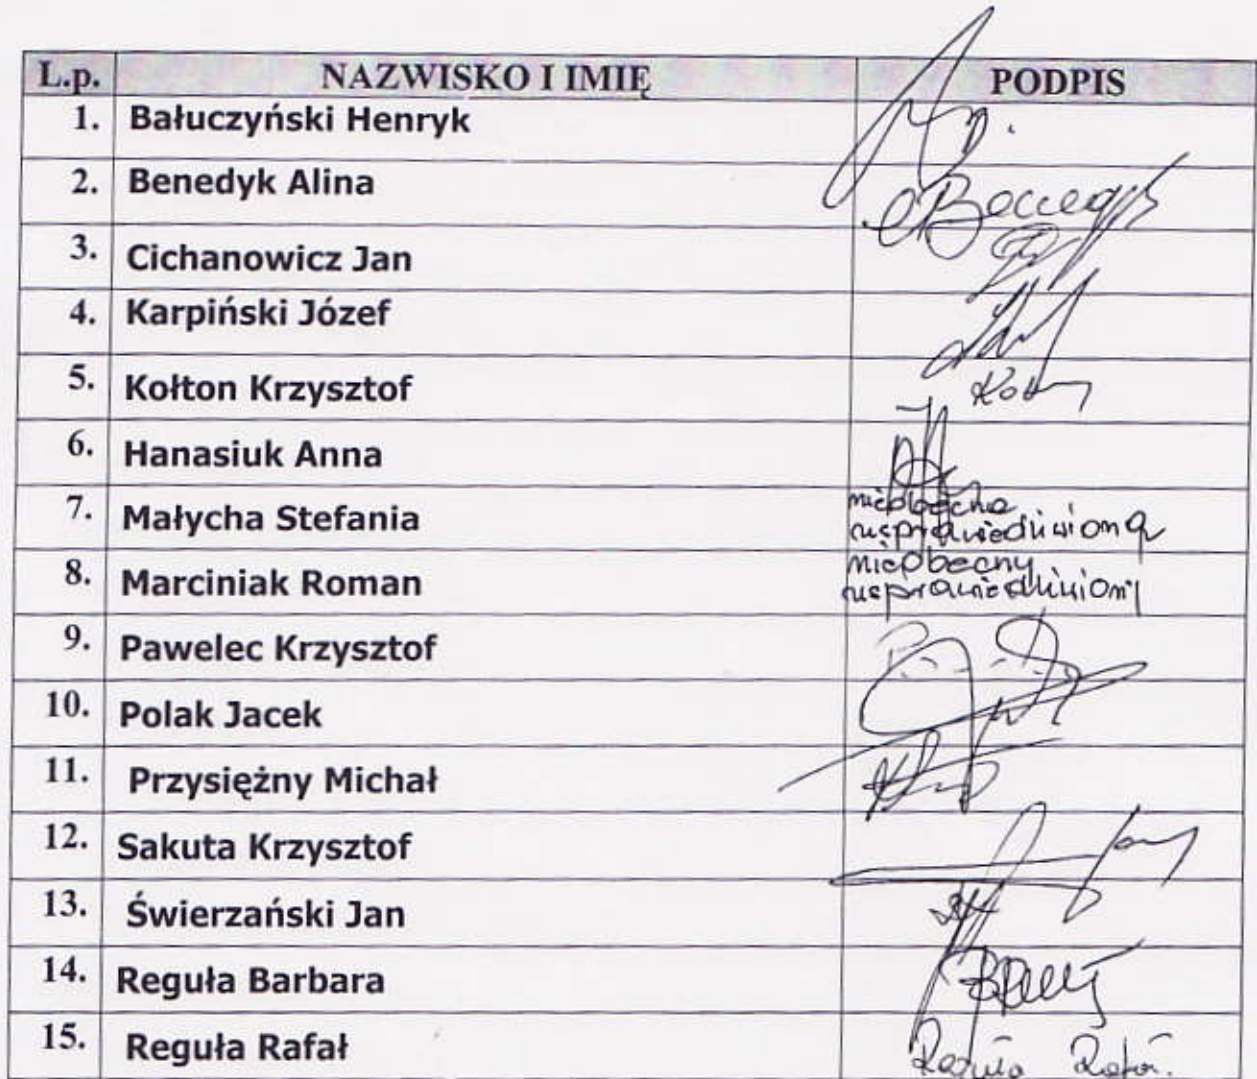 L.p. NAZWISKO I IMIĘ PODPIS
1. Bałuczyński Henryk
2. Benedyk Alina
3. Cichanowicz Jan
4. Karpiński Józef
5. Kołton Krzysztof
6. Hanasiuk Anna
7. Małycha Stefania nieobecna
usprawiedliwiona
8. Marciniak Roman nieobecny
usprawiedliwiony
9. Pawelec Krzysztof
10. Polak Jacek
11. Przysiężny Michał
12. Sakuta Krzysztof
13. Świerzański Jan
14. Reguła Barbara
15. Reguła Rafał Reguła Rafał